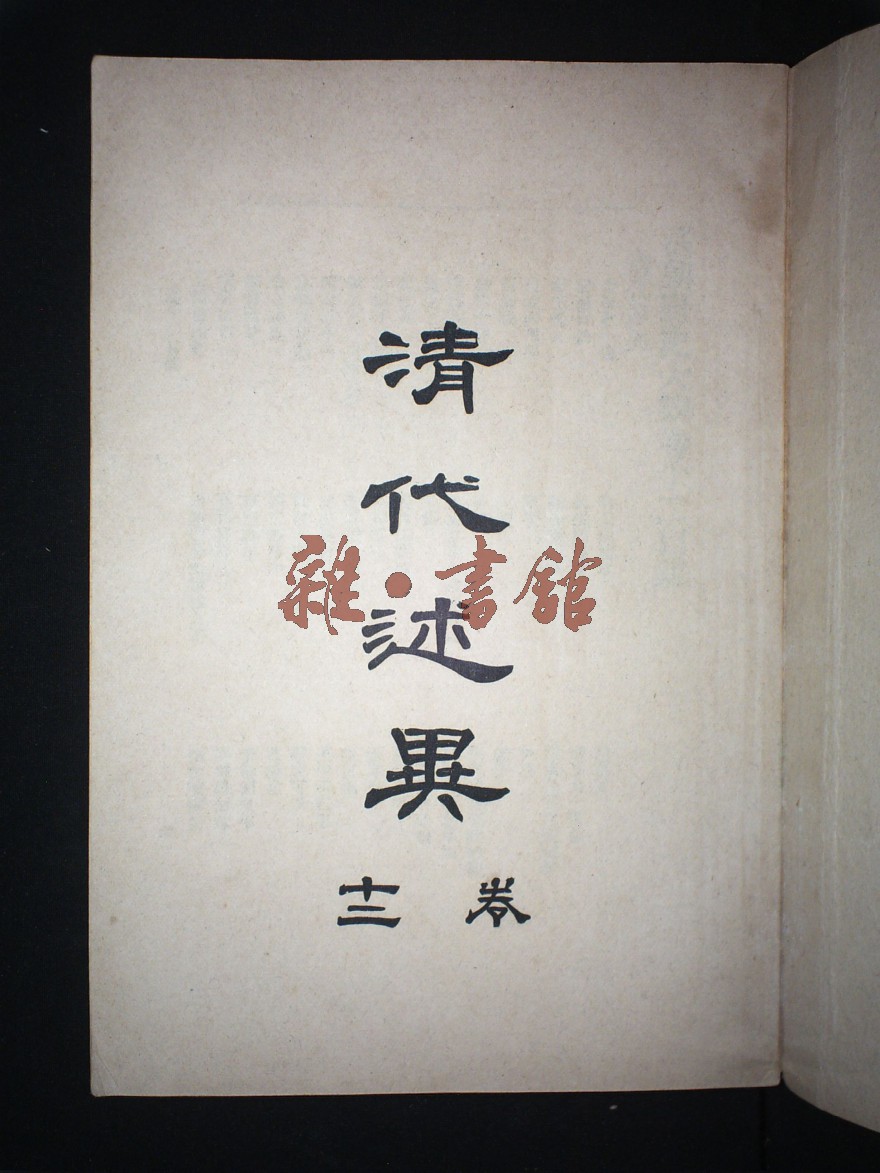 清代述異
卷十二
雜·書館